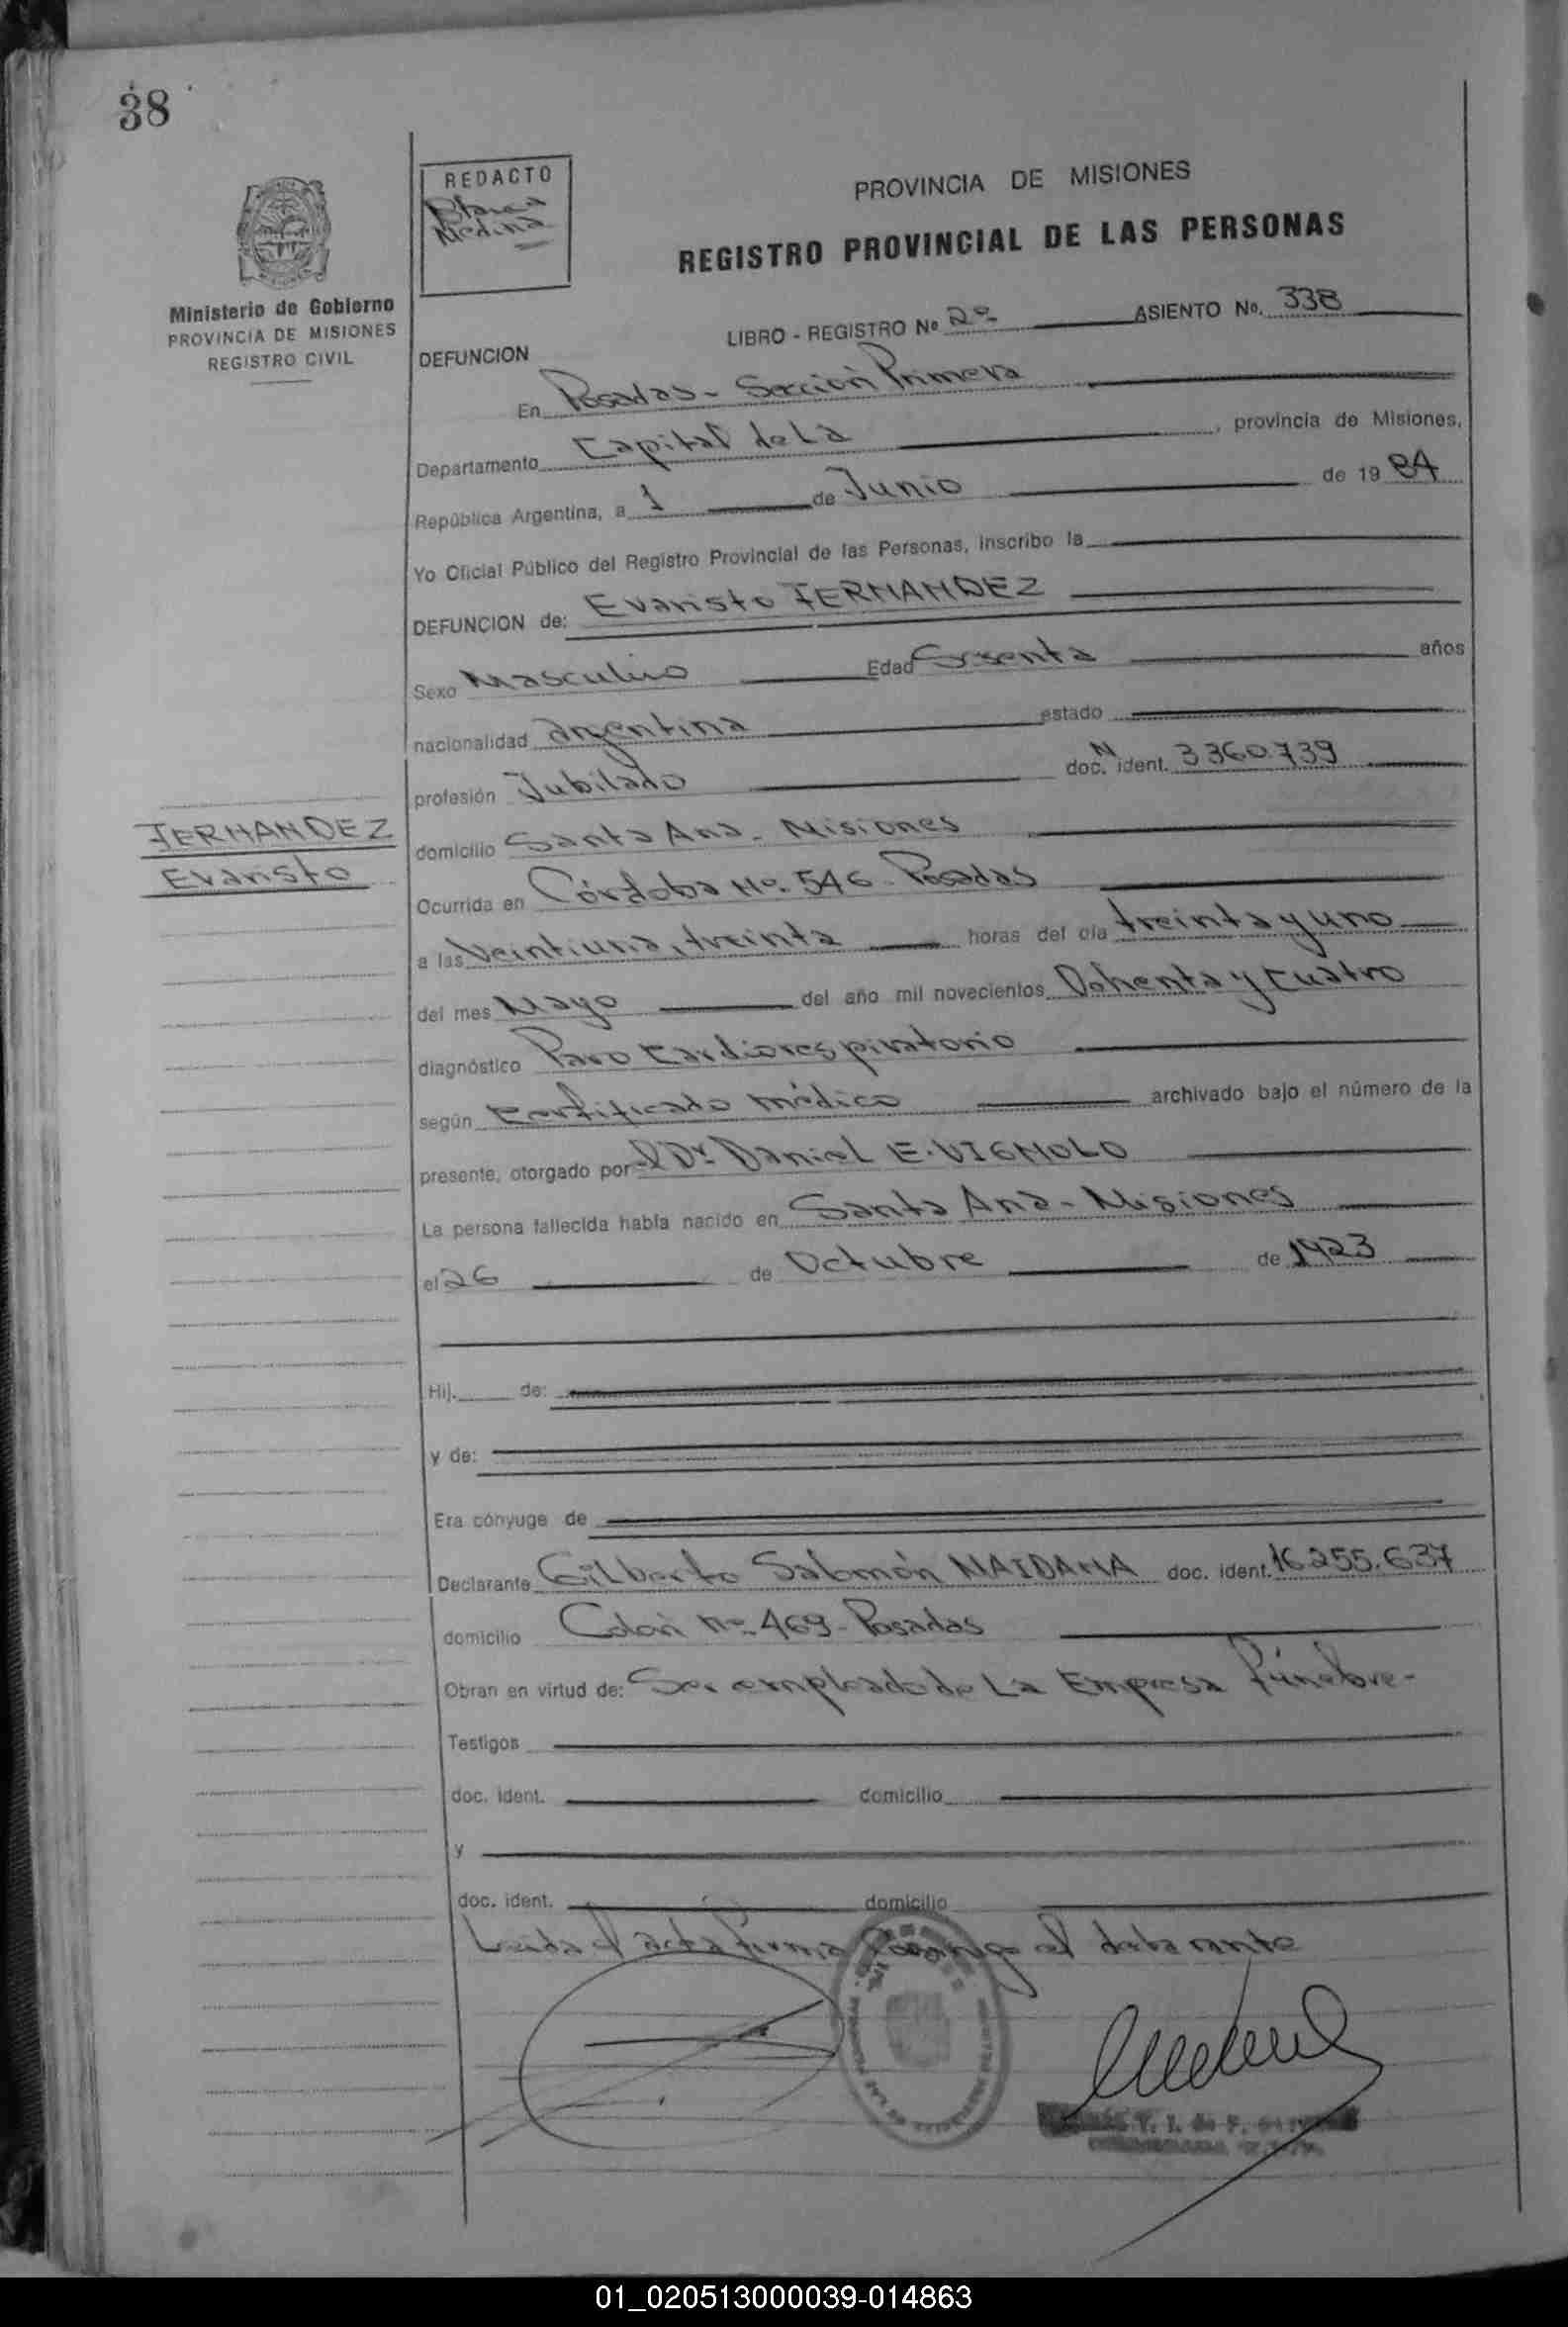 38
REDACTO
Blanca
Medina
PROVINCIA DE MISIONES
REGISTRO PROVINCIAL DE LAS PERSONAS
Ministerio de Gobierno
PROVINCIA DE MISIONES
REGISTRO CIVIL
LIBRO - REGISTRO Nº 2º ASIENTO No. 338
DEFUNCION
En Posadas - Sección Primera
Departamento Capital de La, provincia de Misiones,
República Argentina, a 1 de Junio de 19 84
Yo Oficial Público del Registro Provincial de las Personas, inscribo la
DEFUNCION de: Evaristo FERNANDEZ
Sexo Masculino Edad Sesenta años
nacionalidad argentina estado
profesión Jubilado doc. N ident. 3360.739
FERNANDEZ
Evaristo
domicilio Santa Ana - Misiones
Ocurrida en Córdoba Nº 546 - Posadas
a las Veintiuna, treinta horas del día treinta y uno
del mes Mayo del año mil novecientos Ochenta y Cuatro
diagnóstico Paro Cardiorespiratorio
según Certificado médico archivado bajo el número de la
presente, otorgado por el Dr. Daniel E. VIGNOLO
La persona fallecida había nacido en Santa Ana - Misiones
el 26 de Octubre de 1923
Hij. de:
y de:
Era cónyuge de
Declarante Gilberto Salomón MAIDANA doc. ident. 16.255.637
domicilio Colón Nº 469 - Posadas
Obran en virtud de: Ser empleado de La Empresa Fúnebre -
Testigos
doc. ident. domicilio
y
doc. ident. domicilio
Leída el acta firma conmigo el declarante
01_020513000039-014863